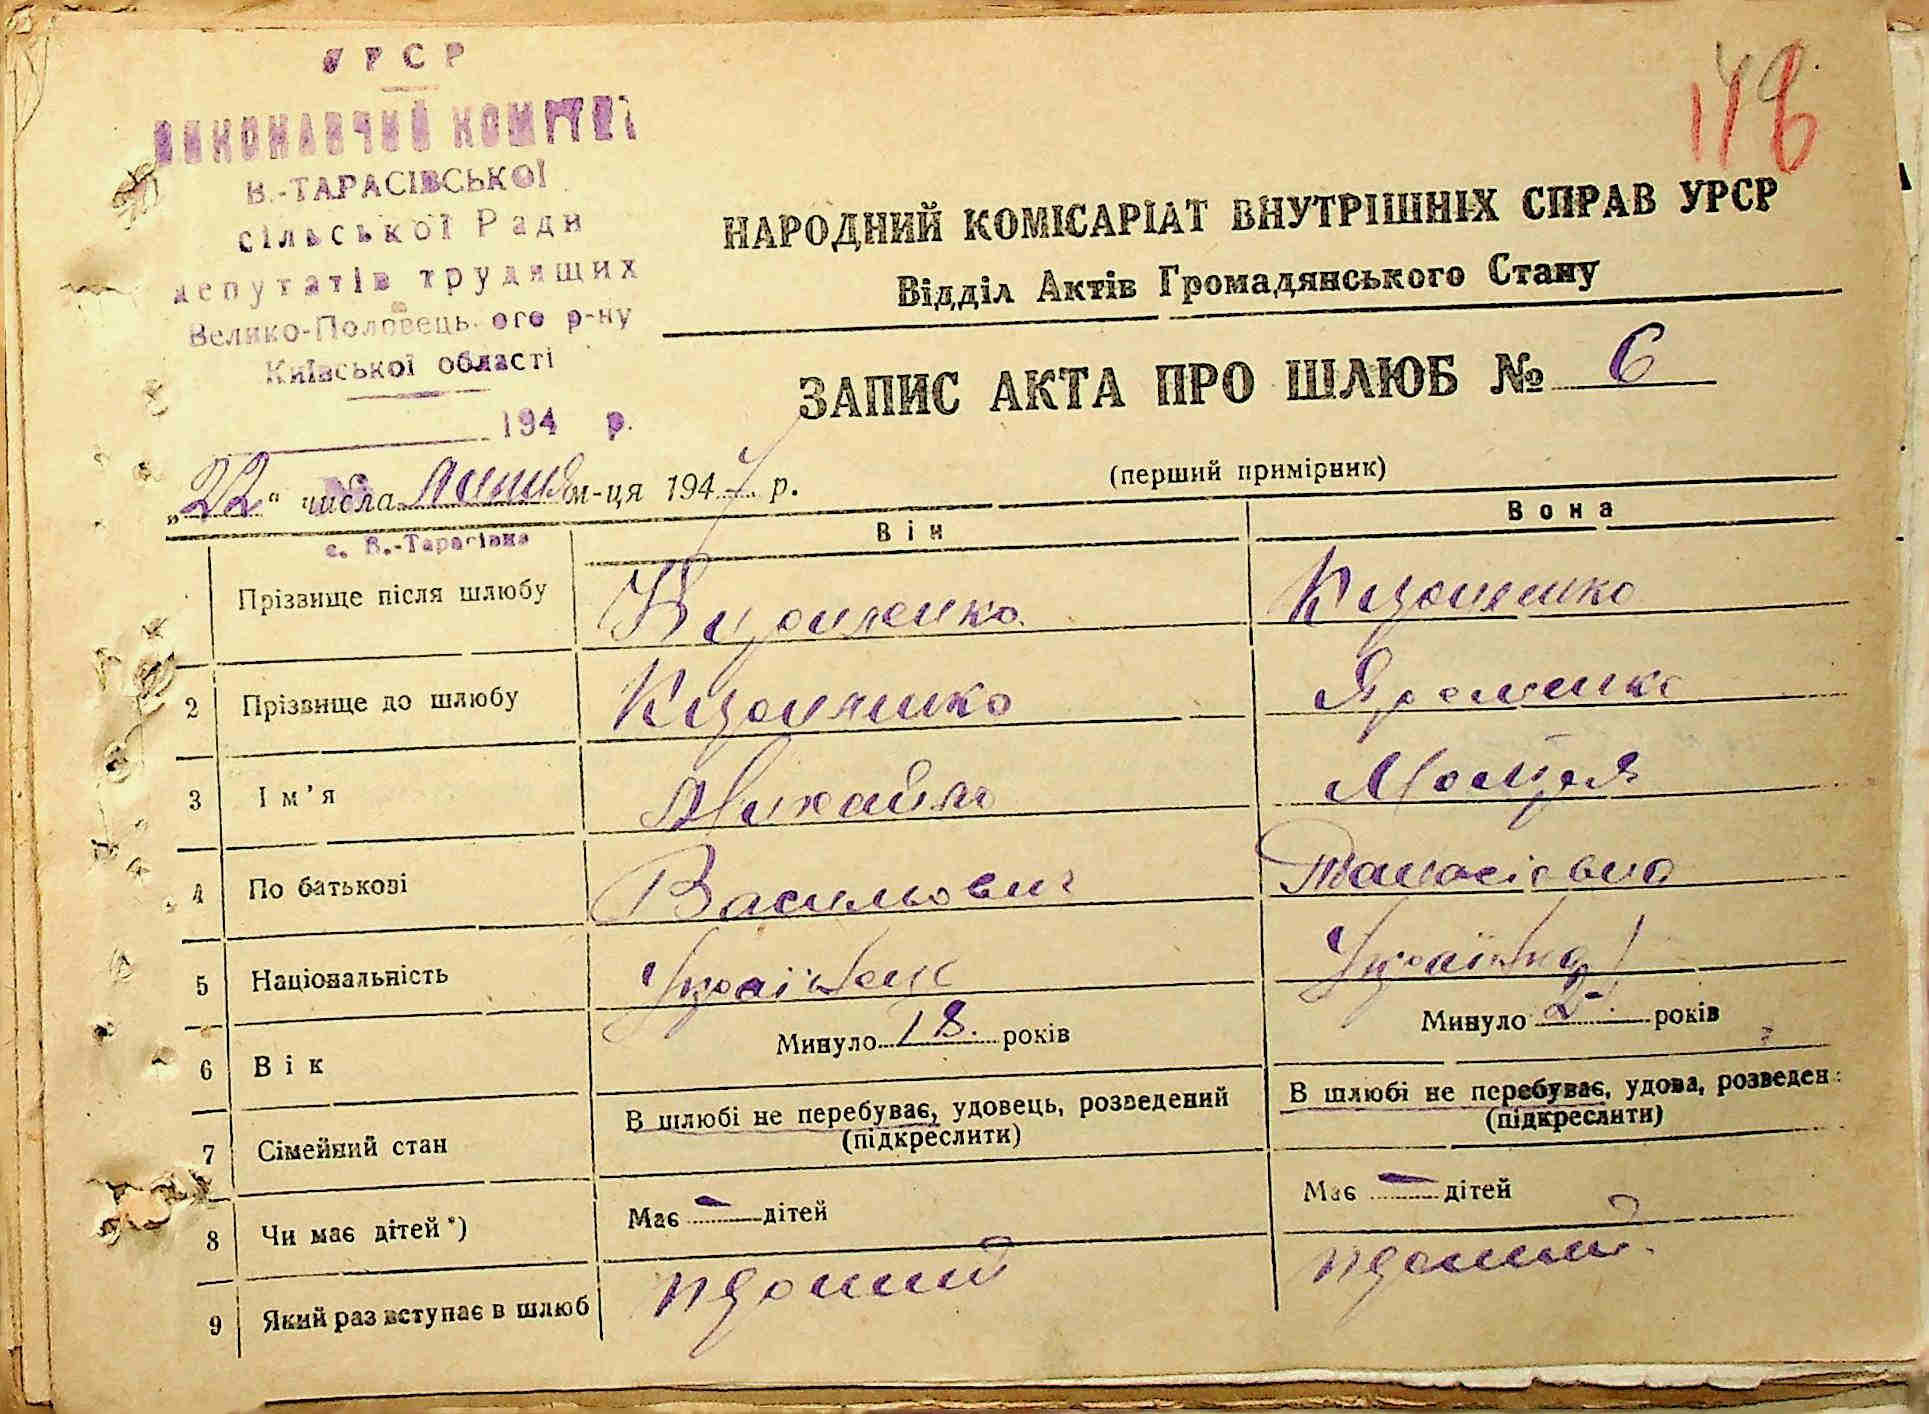 УРСР
ВИКОНАВЧИЙ КОМІТЕТ
В.-ТАРАСІВСЬКОЇ
сільської Ради
депутатів трудящих
Велико-Половець ого р-ну
Київської області
194 р.
НАРОДНИЙ КОМІСАРІАТ ВНУТРІШНІХ СПРАВ УРСР
Відділ Актів Громадянського Стану
ЗАПИС АКТА ПРО ШЛЮБ № 6
„22“ числа липня м-ця 1947 р.
(перший примірник)
с. В.-Тарасівка
Він Вона
Прізвище після шлюбу
2 Прізвище до шлюбу Яременко
3 Ім'я Михайло Мотря
4 По батькові Васильович Танасієвна
5 Національність Українець Українка
6 Вік Минуло 18. років Минуло років
7 Сімейний стан В шлюбі не перебуває, удовець, розведений В шлюбі не перебуває, удова, розведен
(підкреслити) (підкреслити)
8 Чи має дітей *) Має — дітей Має — дітей
9 Який раз вступає в шлюб